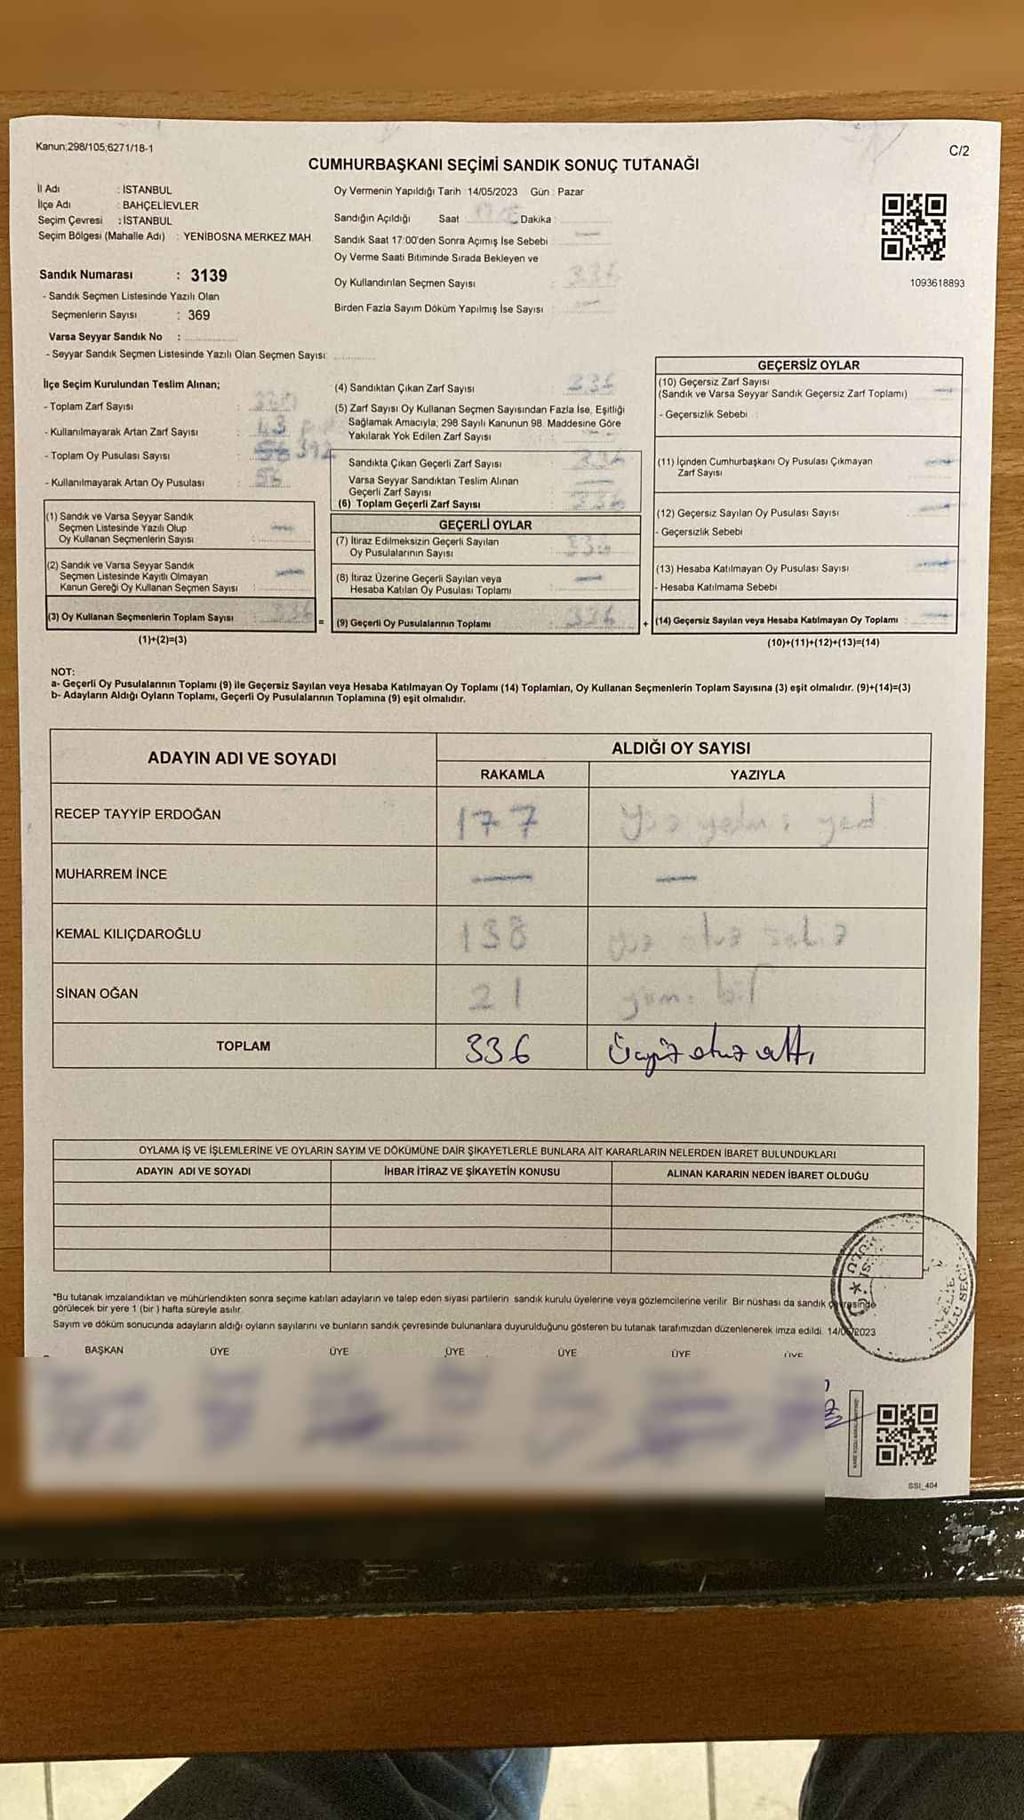 Kanun;298/105,6271/18-1
C/2
CUMHURBAŞKANI SEÇİMİ SANDIK SONUÇ TUTANAĞI
İl Adı : İSTANBUL
İlçe Adı : BAHÇELİEVLER
Seçim Çevresi : İSTANBUL
Seçim Bölgesi (Mahalle Adı) : YENİBOSNA MERKEZ MAH.
Sandık Numarası : 3139
- Sandık Seçmen Listesinde Yazılı Olan
Seçmenlerin Sayısı : 369
Varsa Seyyar Sandık No :
- Seyyar Sandık Seçmen Listesinde Yazılı Olan Seçmen Sayısı
Oy Vermenin Yapıldığı Tarih : 14/05/2023 Gün : Pazar
Sandığın Açıldığı Saat Dakika :
Sandık Saat 17:00'den Sonra Açımış İse Sebebi
Oy Verme Saati Bitiminde Sırada Bekleyen ve
Oy Kullandırılan Seçmen Sayısı : 336
Birden Fazla Sayım Döküm Yapılmış İse Sayısı
1093618893
İlçe Seçim Kurulundan Teslim Alınan;
- Toplam Zarf Sayısı :
- Kullanılmayarak Artan Zarf Sayısı : 43
- Toplam Oy Pusulası Sayısı : 392
- Kullanılmayarak Artan Oy Pusulası : 56
(1) Sandık ve Varsa Seyyar Sandık
Seçmen Listesinde Yazılı Olup
Oy Kullanan Seçmenlerin Sayısı
(2) Sandık ve Varsa Seyyar Sandık
Seçmen Listesinde Kayıtlı Olmayan
Kanun Gereği Oy Kullanan Seçmen Sayısı
(3) Oy Kullanan Seçmenlerin Toplam Sayısı 336
(1)+(2)=(3)
(4) Sandıktan Çıkan Zarf Sayısı : 336
(5) Zarf Sayısı Oy Kullanan Seçmen Sayısından Fazla İse, Eşitliği
Sağlamak Amacıyla; 298 Sayılı Kanunun 98. Maddesine Göre
Yakılarak Yok Edilen Zarf Sayısı
Sandıkta Çıkan Geçerli Zarf Sayısı 336
Varsa Seyyar Sandıktan Teslim Alınan
Geçerli Zarf Sayısı
(6) Toplam Geçerli Zarf Sayısı 336
GEÇERLİ OYLAR
(7) İtiraz Edilmeksizin Geçerli Sayılan
Oy Pusulalarının Sayısı 336
(8) İtiraz Üzerine Geçerli Sayılan veya
Hesaba Katılan Oy Pusulası Toplamı
= (9) Geçerli Oy Pusulalarının Toplamı 336
GEÇERSİZ OYLAR
(10) Geçersiz Zarf Sayısı
(Sandık ve Varsa Seyyar Sandık Geçersiz Zarf Toplamı)
- Geçersizlik Sebebi :
(11) İçinden Cumhurbaşkanı Oy Pusulası Çıkmayan
Zarf Sayısı
(12) Geçersiz Sayılan Oy Pusulası Sayısı
- Geçersizlik Sebebi
(13) Hesaba Katılmayan Oy Pusulası Sayısı
- Hesaba Katılmama Sebebi
+ (14) Geçersiz Sayılan veya Hesaba Katılmayan Oy Toplamı
(10)+(11)+(12)+(13)=(14)
NOT:
a- Geçerli Oy Pusulalarının Toplamı (9) ile Geçersiz Sayılan veya Hesaba Katılmayan Oy Toplamı (14) Toplamları, Oy Kullanan Seçmenlerin Toplam Sayısına (3) eşit olmalıdır. (9)+(14)=(3)
b- Adayların Aldığı Oyların Toplamı, Geçerli Oy Pusulalarının Toplamına (9) eşit olmalıdır.
ADAYIN ADI VE SOYADI
ALDIĞI OY SAYISI
RAKAMLA YAZIYLA
RECEP TAYYİP ERDOĞAN 177 Yüz yetmiş yedi
MUHARREM İNCE — —
KEMAL KILIÇDAROĞLU 138 yüz otuz sekiz
SİNAN OĞAN 21 yirmi bir
TOPLAM 336 Üçyüz otuz altı
OYLAMA İŞ VE İŞLEMLERİNE VE OYLARIN SAYIM VE DÖKÜMÜNE DAİR ŞİKAYETLERLE BUNLARA AİT KARARLARIN NELERDEN İBARET BULUNDUKLARI
ADAYIN ADI VE SOYADI İHBAR İTİRAZ VE ŞİKAYETİN KONUSU ALINAN KARARIN NEDEN İBARET OLDUĞU
*Bu tutanak imzalandıktan ve mühürlendikten sonra seçime katılan adayların ve talep eden siyasi partilerin sandık kurulu üyelerine veya gözlemcilerine verilir. Bir nüshası da sandık çevresinde
görülecek bir yere 1 (bir) hafta süreyle asılır.
Sayım ve döküm sonucunda adayların aldığı oyların sayılarını ve bunların sandık çevresinde bulunanlara duyurulduğunu gösteren bu tutanak tarafımızdan düzenlenerek imza edildi. 14/05/2023
BAŞKAN ÜYE ÜYE ÜYE ÜYE ÜYE ÜYE
SSI_404